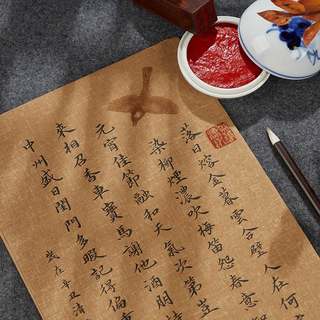 落日熔金暮雲合璧人在何
染柳煙濃吹梅笛怨春意
元宵佳節融和天氣次第豈
來相召香車寶馬謝他酒朋
中州盛日閨門多暇記得偏
歲在辛丑清